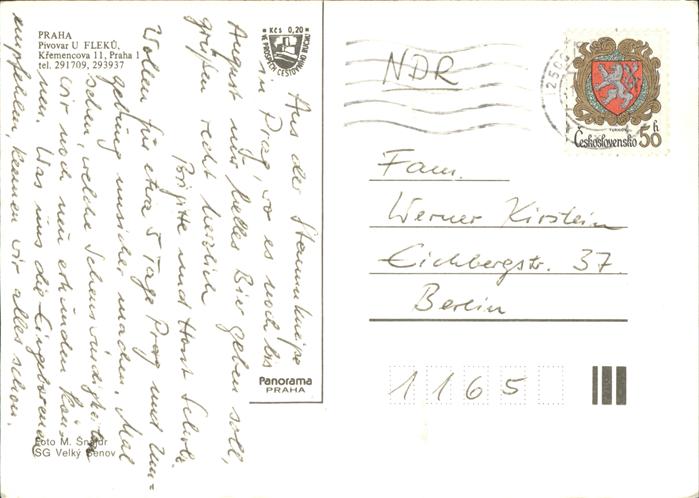 PRAHA
Pivovar U FLEKŮ,
Křemencova 11, Praha 1
tel. 291709, 293937
Kčs 0,20
VE PROSPĚCH CESTOVNÍHO RUCHU
Aus der Stammkneipe
in Prag, wo es noch bis
August nur helles Bier geben soll,
grüßen recht herzlich
Brigitte und Horst
Wollen für etwa 5 Tage Prag und Um-
gebung unsicher machen. Mal
sehen, welche Sehenswürdigkeiten
wir noch neu erkunden kön-
nen. Was uns die Eingeborenen
empfehlen, kennen wir alles schon.
Panorama
PRAHA
Foto M. Šnajdr
SG Velký Šenov
NDR
Československo 50 h
Fam.
Werner Kirstein
Eichbergstr. 37
Berlin
1165